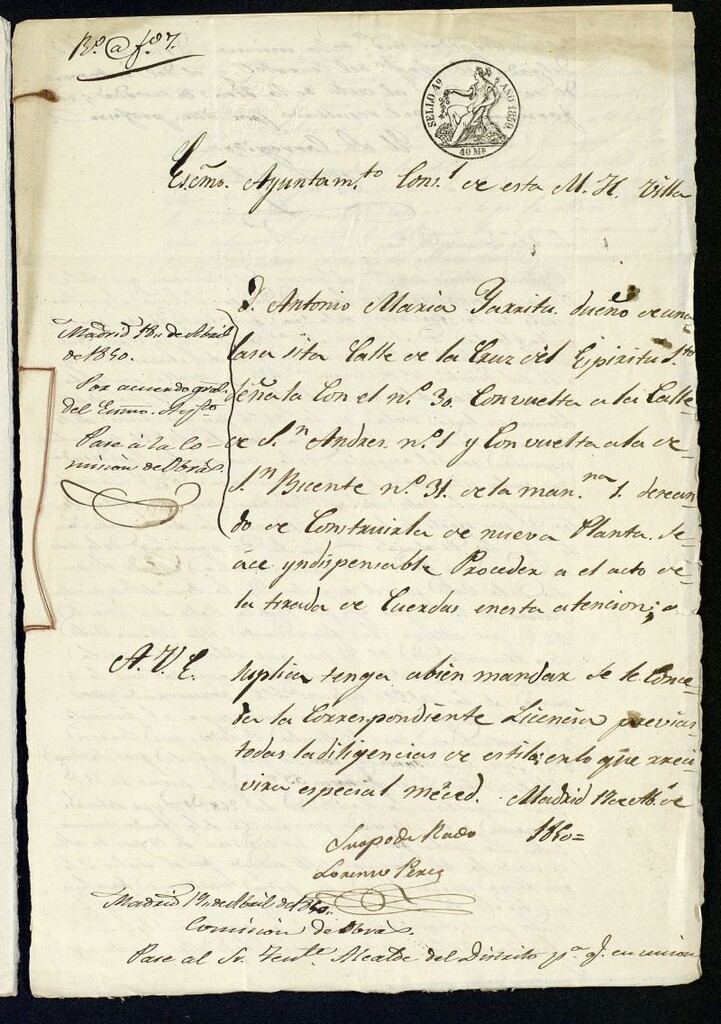 Rº @ fº 7.
SELLO 4º AÑO 1850.
40 Ms
Escmo. Ayuntam.to Cons.l de esta M. H. Villa
D. Antonio Maria Yarritu dueño de una
Casa sita Calle de la Cruz del Espiritu S.to
señala Con el n.º 30. Con vuelta a la Calle
de S.n Andres n.º 1 y Con vuelta a la de
S.n Bicente n.º 31. de la man.na 1. desean
do de Construirla de nueva Planta. se
ace yndispensable Proceder a el acto de
la tirada de Cuerdas enesta atencion; a
Madrid 18,, de Abril
de 1850.
Por acuerdo gral.
del Escmo. Ayto
Pase á la Co-
mision de Obras.
A. V. E. suplica tenga abien mandar se le Conce
da la Correspondiente Licencia previas
todas la diligencias de estilo; en lo que rreci
vira especial merced. Madrid 17 de Ab.l de
1850=
Supo de Rado
Lorenzo Perez
Madrid 19,, de Abril de 1850.
Comision de Obras.
Pase al Sr. Tente. Alcalde del Distrito pª q. en union